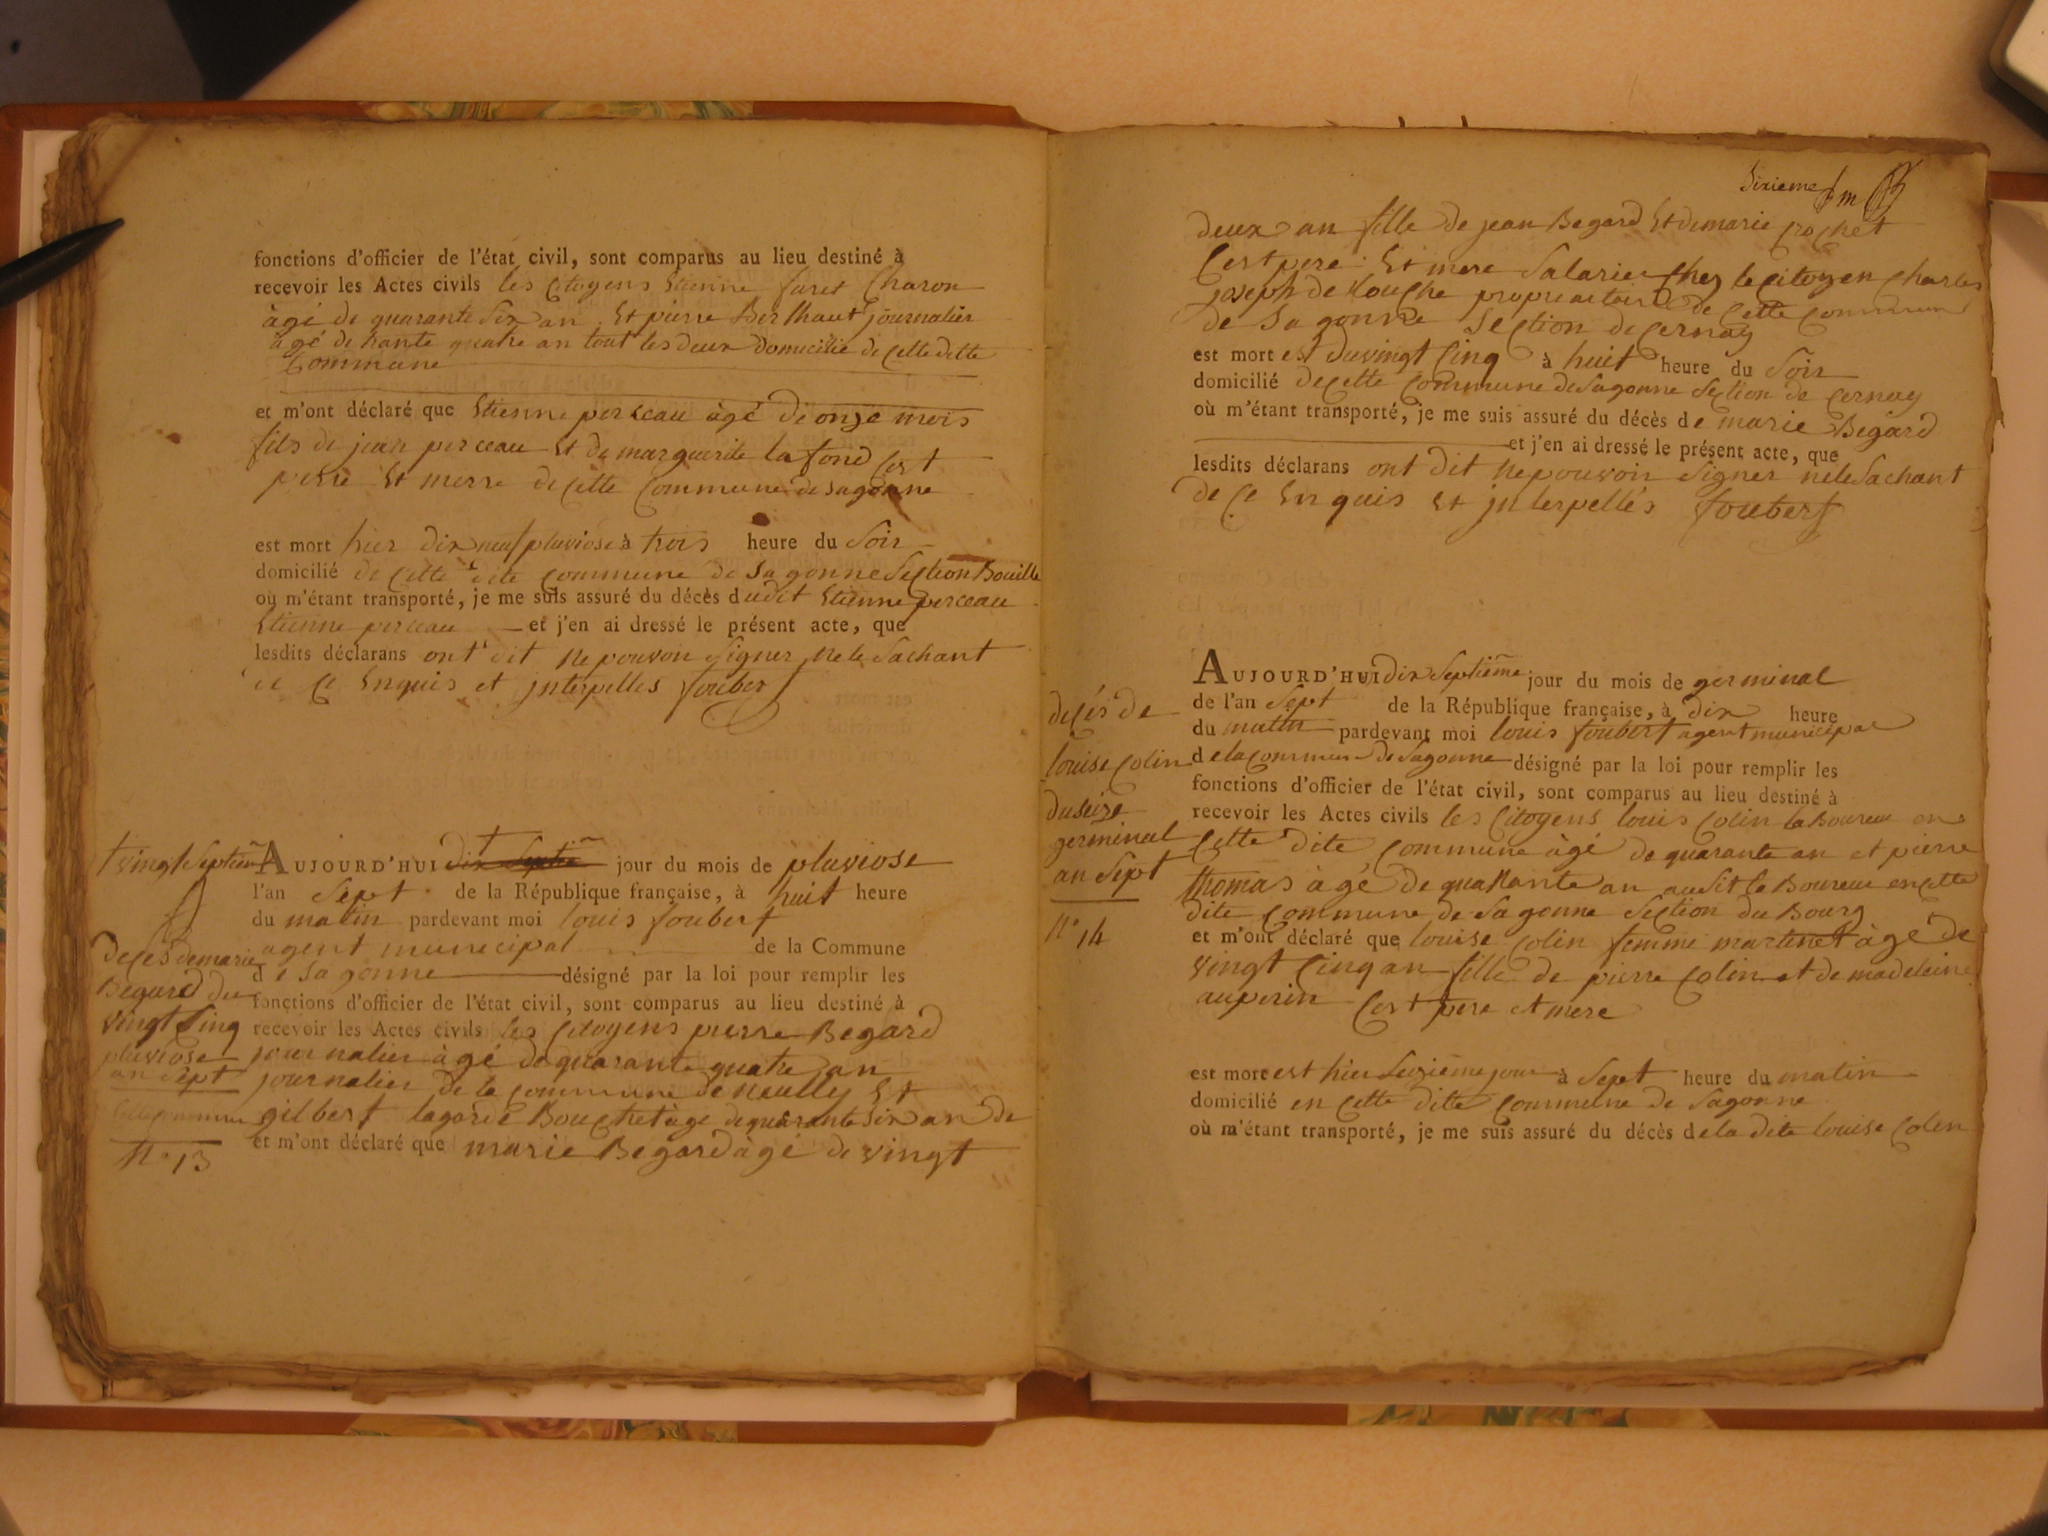 fonctions d'officier de l'état civil, sont comparus au lieu destiné à
recevoir les Actes civils les Citoyens Etienne furet Charon
àgé de quarante Six an Et pierre Berthaut journalier
àgé de trante quatre an tout les deux domicilié de Cette ditte
Commune
et m'ont déclaré que Etienne perceau àgé de onze mois
fils de jean perceau Et de marguerite la fond Cest
perre Et merre de Cette Commune de Sagonne
est mort hier dix neuf pluviose à trois heure du Soir
domicilié de Cette dite Commune de Sagonne Section Bouille
où m'étant transporté, je me suis assuré du décès dudit Etienne perceau
Etienne perceau et j'en ai dressé le présent acte, que
lesdits déclarans ont dit ne pouvon Signer ne le Sachant
de Ce Enquis et jnterpelles foubert
† vingt Septiem
AUJOURD'HUI dix Septiem † jour du mois de pluviose
l'an Sept de la République française, à huit heure
du matin pardevant moi louis foubert
agent municipal de la Commune
de Sagonne désigné par la loi pour remplir les
fonctions d'officier de l'état civil, sont comparus au lieu destiné à
recevoir les Actes civils les Citoyens pierre Begard
journalier àgé de quarante quatre an
journalier de la Commune de neuilly Et
gilbert lagorde Bouchet àge de quarante Six an de
et m'ont déclaré que marie Begard àgé de vingt
deces de marie
Begard du
vingt Cinq
pluviose
an Sept
N° 13
Sixieme
deux an fille de jean Begard Et de marie Crochet
Cest pere Et mere Salarier Chez le Citoyen Charles
joseph de Louche propriaitaire de Cette Commune
de Sagonne Section de Cernay
est mort est du vingt Cinq à huit heure du Soir
domicilié de Cette Commune de Sagonne Section de Cernay
où m'étant transporté, je me suis assuré du décès de marie Begard
et j'en ai dressé le présent acte, que
lesdits déclarans ont dit ne pouvoir Signer ne le Sachant
de Ce Enquis Et jnterpellés foubert
AUJOURD'HUI dix Septiéme jour du mois de germinal
de l'an Sept de la République française, à dix heure
du matin pardevant moi louis foubert agent municipal
de la Commune de Sagonne désigné par la loi pour remplir les
fonctions d'officier de l'état civil, sont comparus au lieu destiné à
recevoir les Actes civils les Citoyens louis Colin la Boureur en
Cette dite Commune àgé de quarante an et pierre
thomas àgé de quarante an ausit la Boureur en Cette
dite Commune de Sagonne Section du Bourg
et m'ont déclaré que louise Colin femme martinet àgé de
vingt Cinq an fille de pierre Colin et de madeleine
auperin Cest pere et mere
est mort est hier Seizieme jour à Sept heure du matin
domicilié en Cette ditte Commune de Sagonne
où m'étant transporté, je me suis assuré du décès de la dite louise Colin
decés de
louise Colin
du seize
germinal
an Sept
N° 14